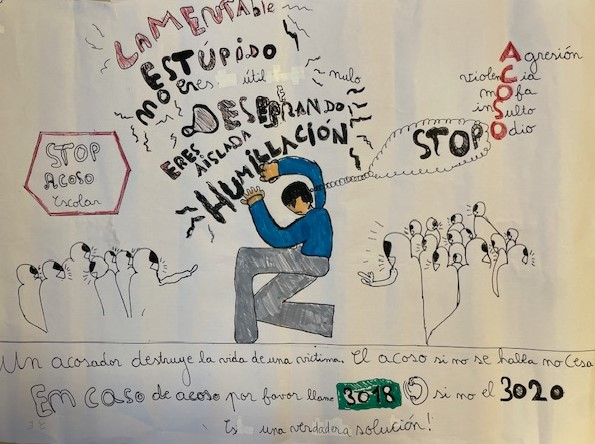 LAMENTAble
ESTÚPIDO
no eres útil nulo
DESESPERANDO
ERES AISLADA
HUMILLACIÓN
STOP
ACOSO
Escolar
STOP
Agresión
violenCia
mOfa
inSulto
Odio
Un acosador destruye la vida de una victima. El acoso si no se halla no cesa
Em caso de acoso por favor llame 3018 si no el 3020
Es una verdadera solución!